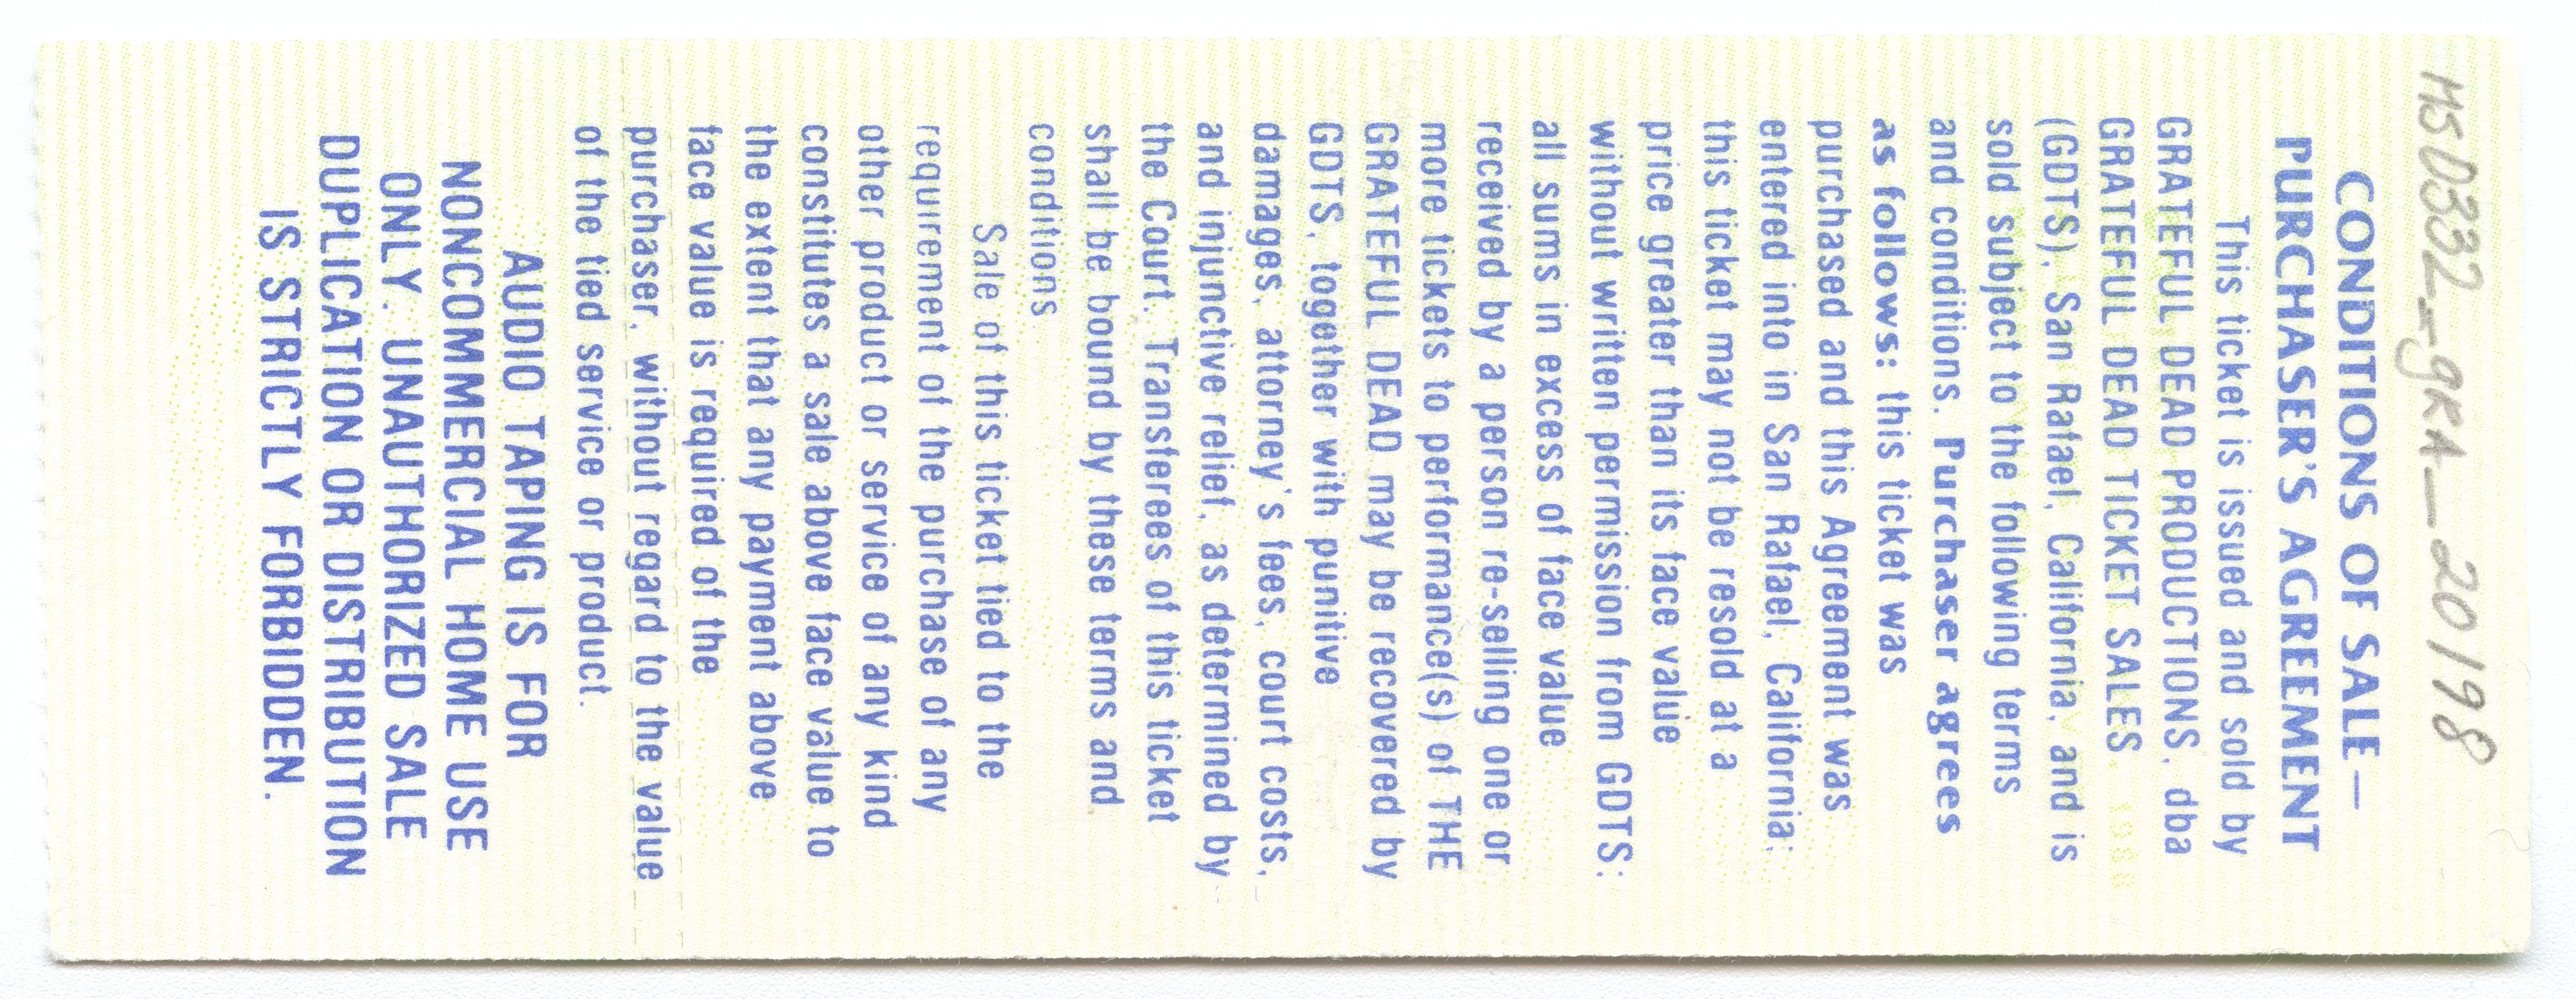 MS0332_gra_20198
CONDITIONS OF SALE—
PURCHASER'S AGREEMENT
This ticket is issued and sold by
GRATEFUL DEAD PRODUCTIONS, dba
GRATEFUL DEAD TICKET SALES
(GDTS), San Rafael, California, and is
sold subject to the following terms
and conditions. Purchaser agrees
as follows: this ticket was
purchased and this Agreement was
entered into in San Rafael, California;
this ticket may not be resold at a
price greater than its face value
without written permission from GDTS;
all sums in excess of face value
received by a person re-selling one or
more tickets to performance(s) of THE
GRATEFUL DEAD may be recovered by
GDTS, together with punitive
damages, attorney's fees, court costs,
and injunctive relief, as determined by
the Court. Transferees of this ticket
shall be bound by these terms and
conditions.
Sale of this ticket tied to the
requirement of the purchase of any
other product or service of any kind
constitutes a sale above face value to
the extent that any payment above
face value is required of the
purchaser, without regard to the value
of the tied service or product.
AUDIO TAPING IS FOR
NONCOMMERCIAL HOME USE
ONLY. UNAUTHORIZED SALE
DUPLICATION OR DISTRIBUTION
IS STRICTLY FORBIDDEN.